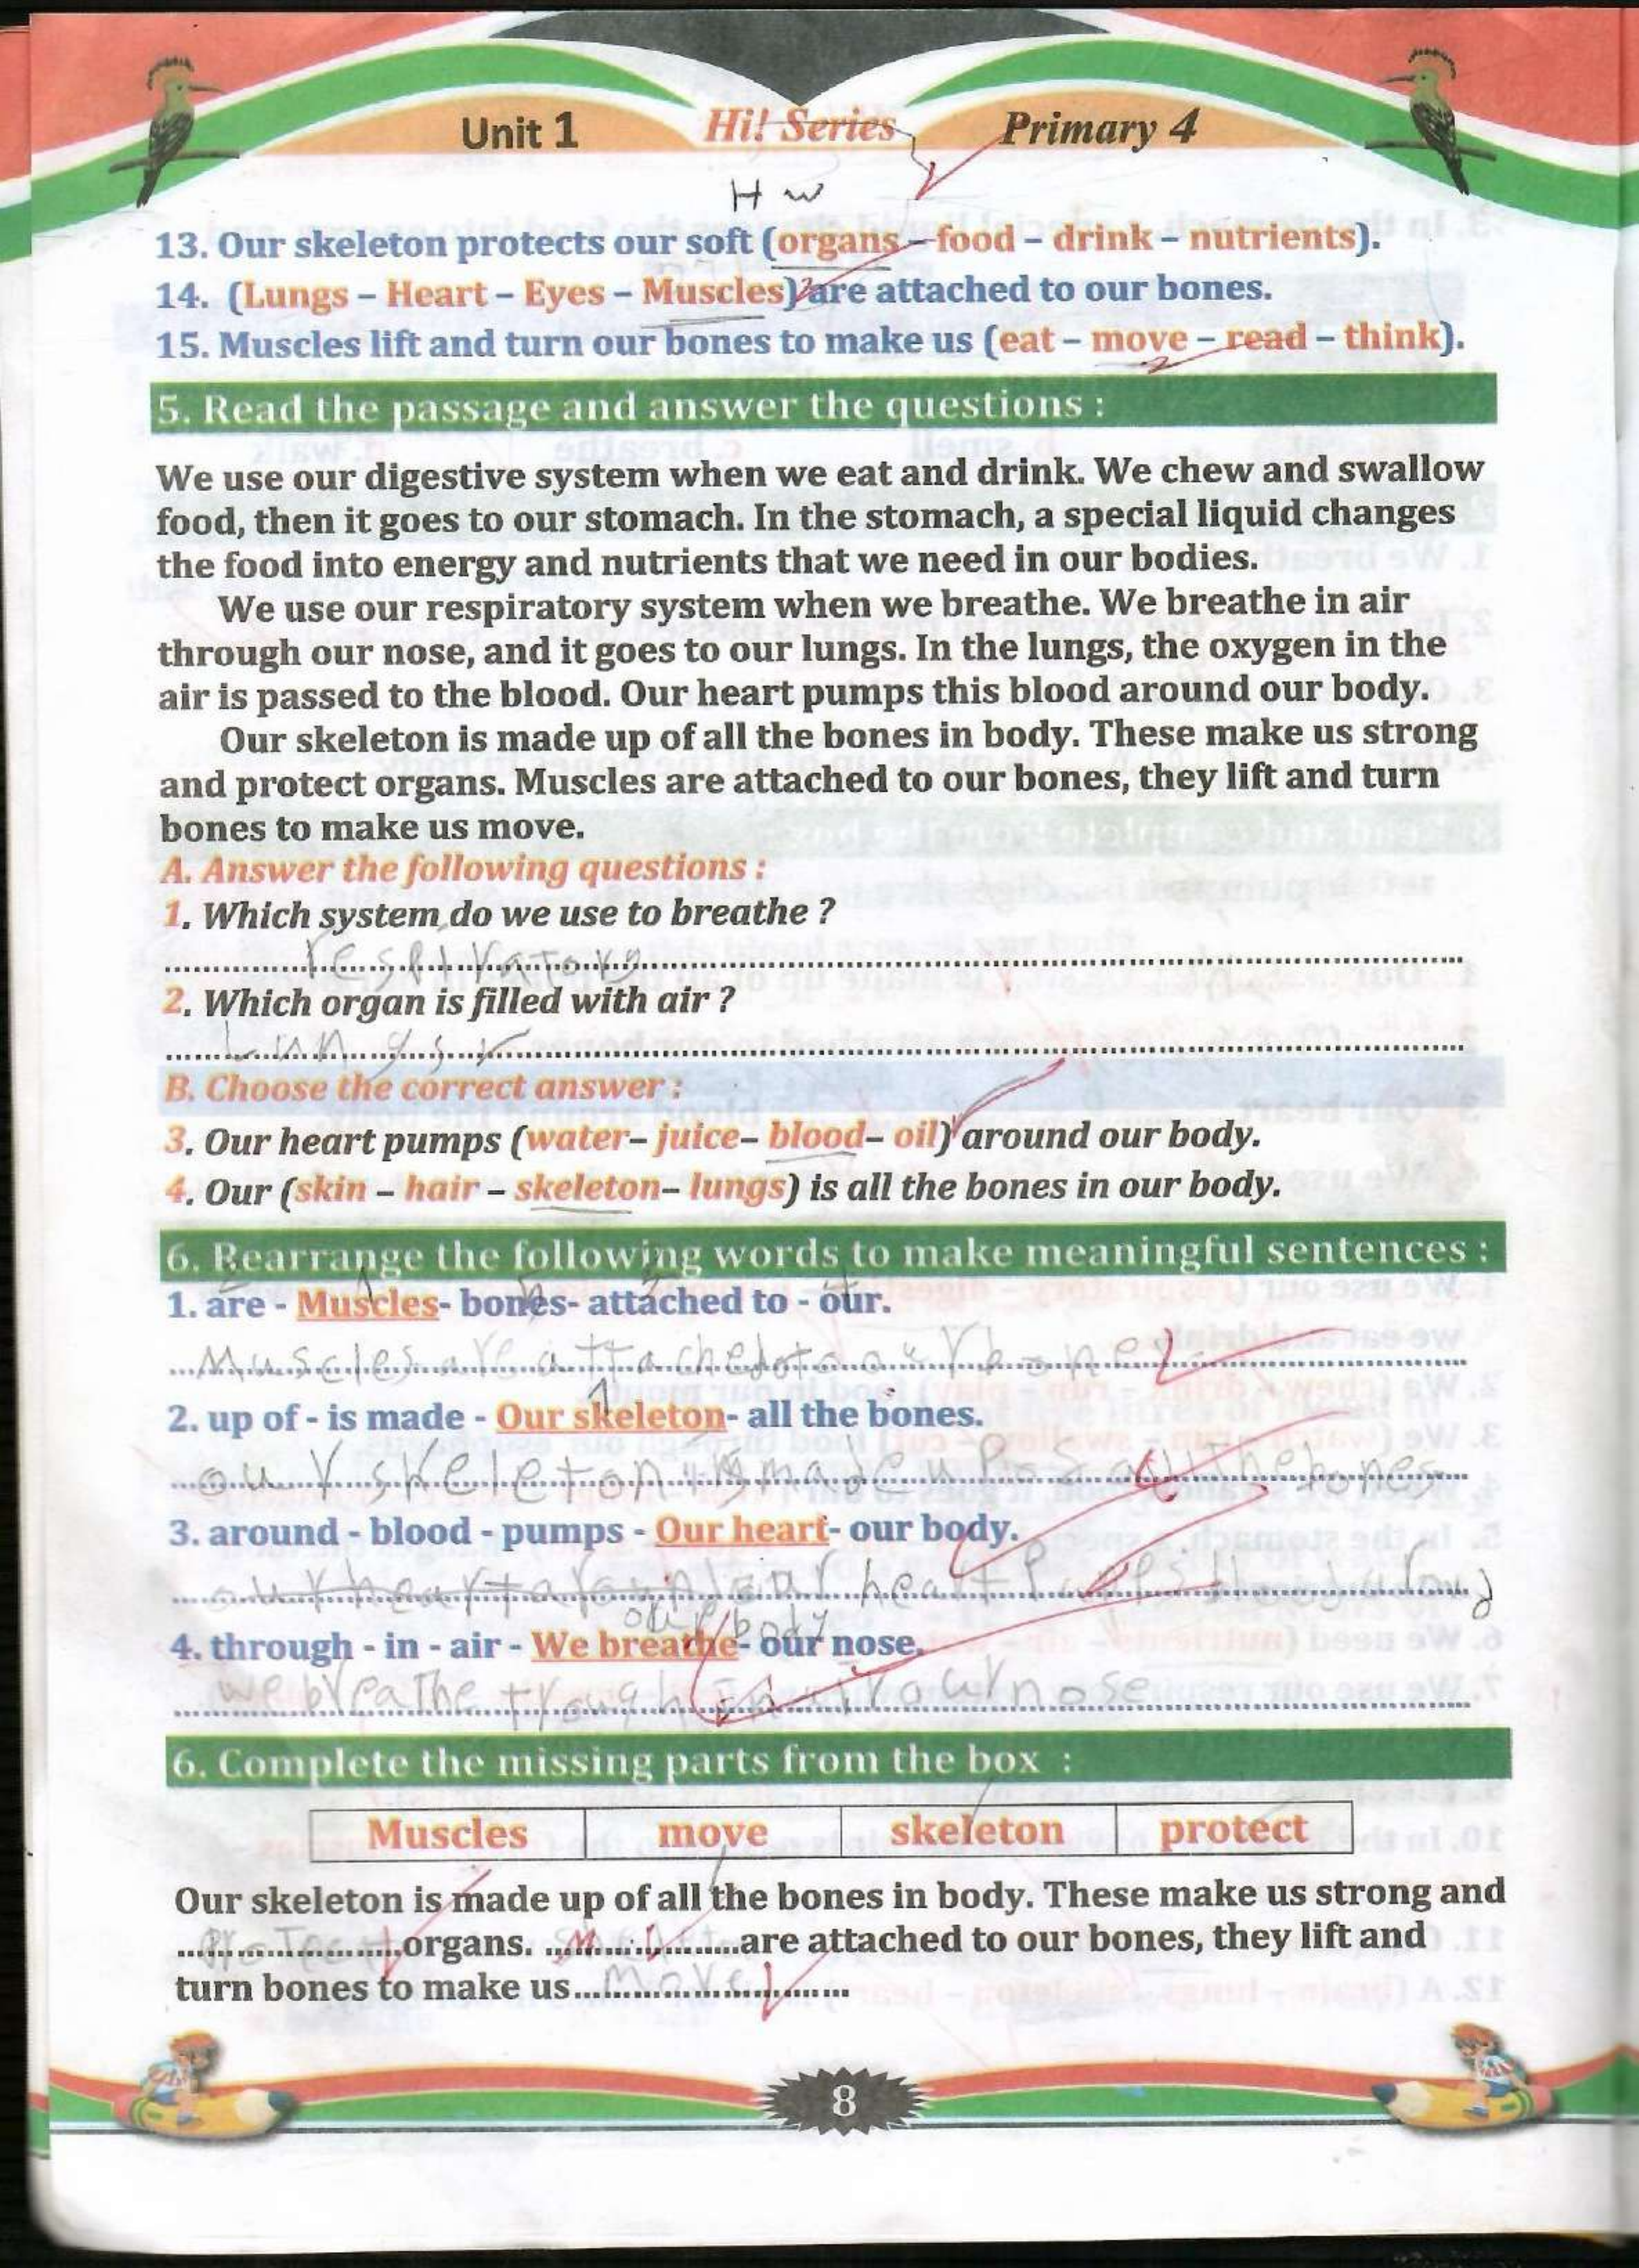 Unit 1 Hi! Series Primary 4
H W
13. Our skeleton protects our soft (organs – food – drink – nutrients).
14. (Lungs – Heart – Eyes – Muscles) are attached to our bones.
15. Muscles lift and turn our bones to make us (eat – move – read – think).
5. Read the passage and answer the questions :
We use our digestive system when we eat and drink. We chew and swallow
food, then it goes to our stomach. In the stomach, a special liquid changes
the food into energy and nutrients that we need in our bodies.
We use our respiratory system when we breathe. We breathe in air
through our nose, and it goes to our lungs. In the lungs, the oxygen in the
air is passed to the blood. Our heart pumps this blood around our body.
Our skeleton is made up of all the bones in body. These make us strong
and protect organs. Muscles are attached to our bones, they lift and turn
bones to make us move.
A. Answer the following questions :
1. Which system do we use to breathe ?
respiratory
2. Which organ is filled with air ?
Lungs
B. Choose the correct answer :
3. Our heart pumps (water– juice– blood– oil) around our body.
4. Our (skin – hair – skeleton– lungs) is all the bones in our body.
6. Rearrange the following words to make meaningful sentences :
1. are - Muscles- bones- attached to - our.
Muscles are attached to our bones
2. up of - is made - Our skeleton- all the bones.
our skeleton is made up of all the bones
3. around - blood - pumps - Our heart- our body.
our heart
our body
4. through - in - air - We breathe- our nose.
we breathe trough in air our nose
6. Complete the missing parts from the box :
Muscles move skeleton protect
Our skeleton is made up of all the bones in body. These make us strong and
Protect organs. are attached to our bones, they lift and
turn bones to make us move
8